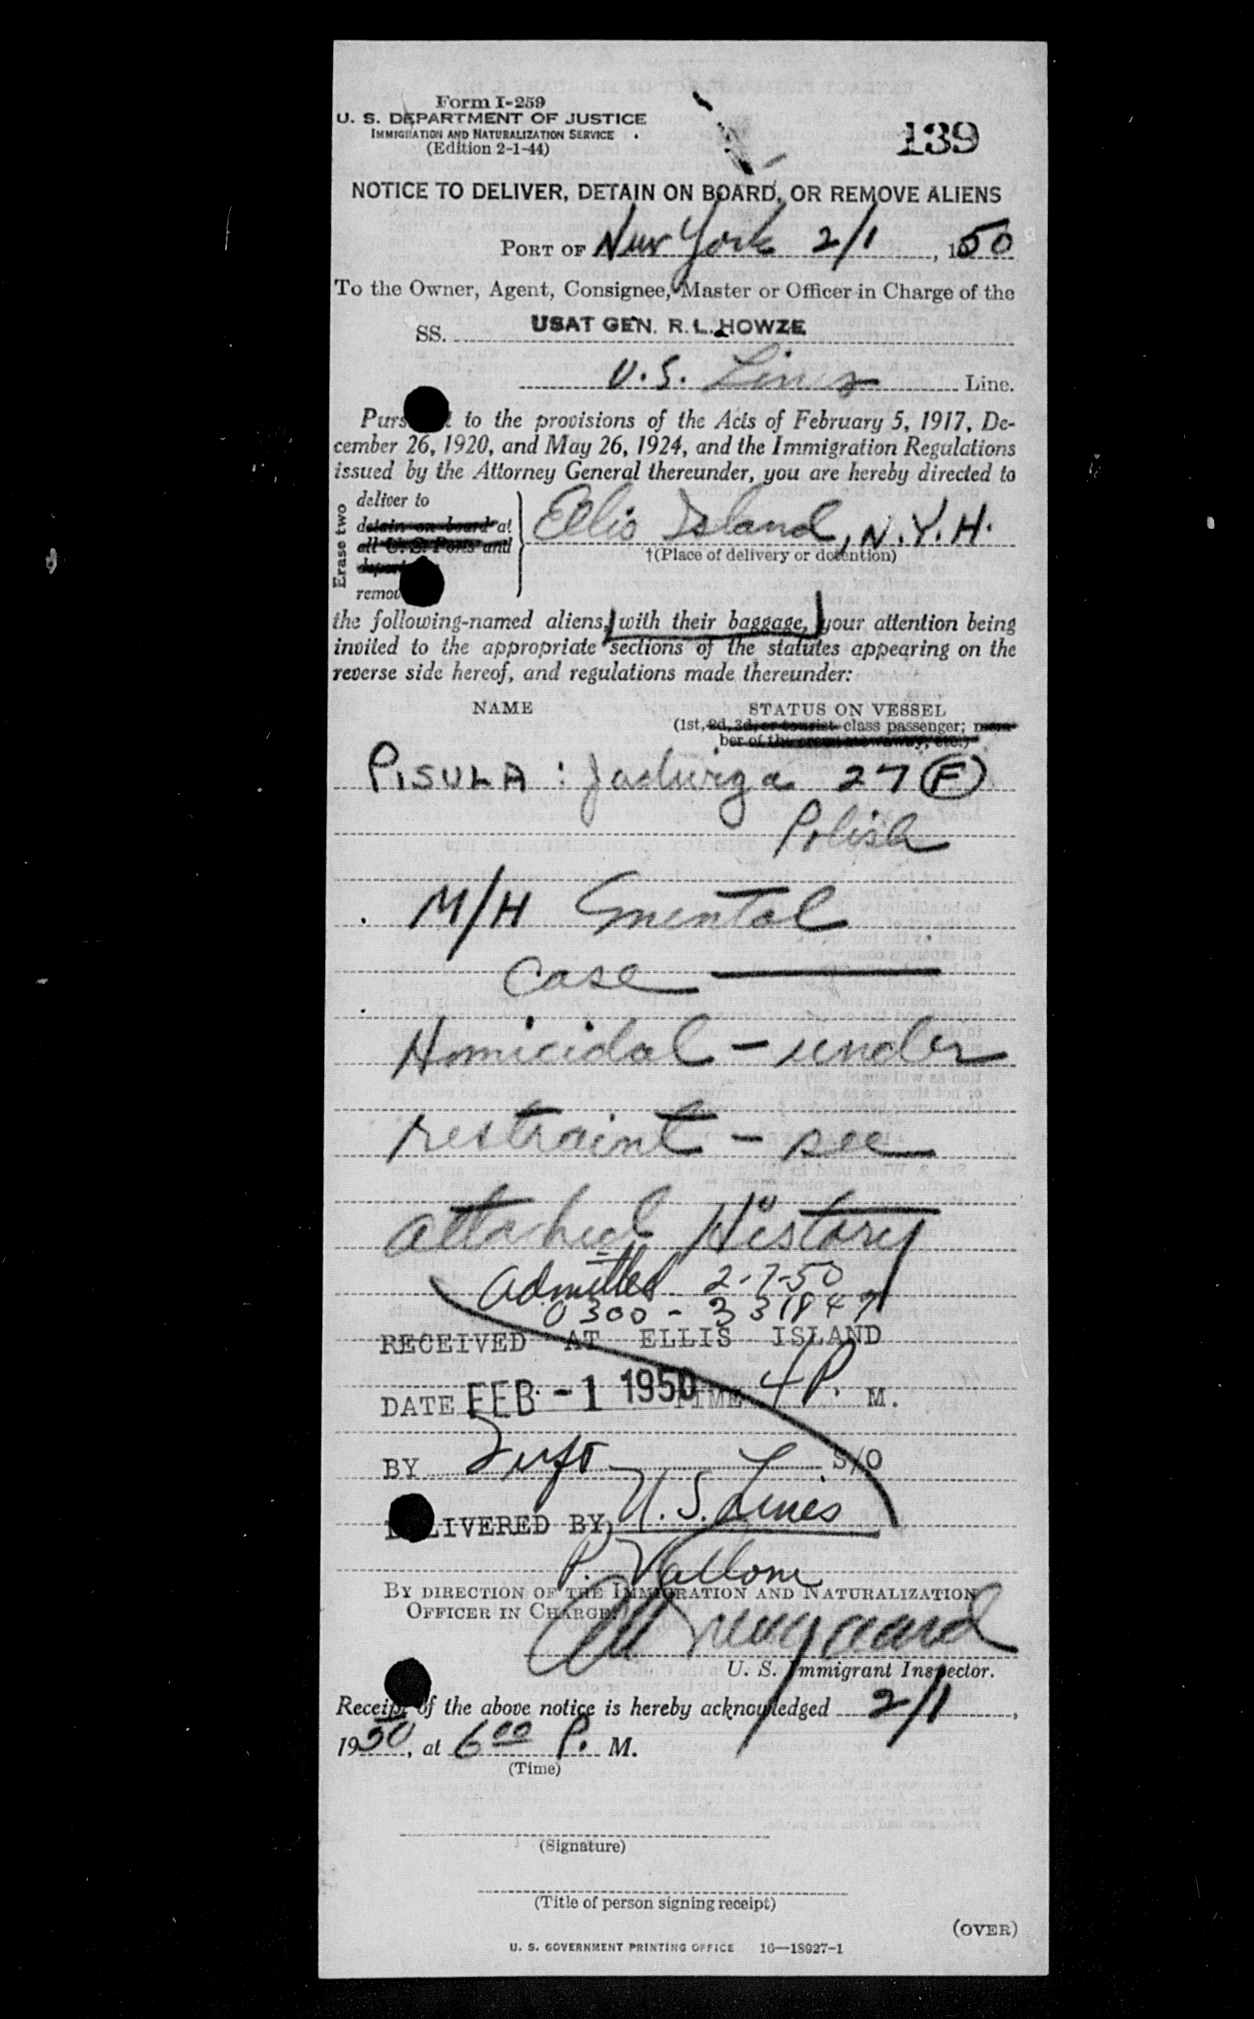 Form I-259
U. S. DEPARTMENT OF JUSTICE
IMMIGRATION AND NATURALIZATION SERVICE
(Edition 2-1-44)
139
NOTICE TO DELIVER, DETAIN ON BOARD, OR REMOVE ALIENS
PORT OF New York 2/1, 1950
To the Owner, Agent, Consignee, Master or Officer in Charge of the
SS. USAT GEN. R. L. HOWZE
U.S. Lines Line.
Purs t to the provisions of the Acts of February 5, 1917, De-
cember 26, 1920, and May 26, 1924, and the Immigration Regulations
issued by the Attorney General thereunder, you are hereby directed to
Erase two
deliver to
detain on board at
all U. S. Ports and
deport
remov
Ellis Island, N.Y.H.
†(Place of delivery or detention)
the following-named aliens, with their baggage, your attention being
invited to the appropriate sections of the statutes appearing on the
reverse side hereof, and regulations made thereunder:
NAME STATUS ON VESSEL
(1st, 2d, 3d, or tourist class passenger; mem-
ber of the crew, stowaway, etc.)
PISULA : Jadwiga 27 (F)
Polish
M/H mental
case
Homicidal - under
restraint - see
attached History
Admitted 2-7-50
0300-331847
RECEIVED AT ELLIS ISLAND
DATE FEB -1 1950 TIME 4 P. M.
BY S/O
LIVERED BY U.S. Lines
P.
BY DIRECTION OF THE IMMIGRATION AND NATURALIZATION
OFFICER IN CHARGE:
U. S. Immigrant Inspector.
Receipt of the above notice is hereby acknowledged 2/1,
1950, at 6 00 P. M.
(Time)
(Signature)
(Title of person signing receipt)
(OVER)
U. S. GOVERNMENT PRINTING OFFICE 16—18927-1